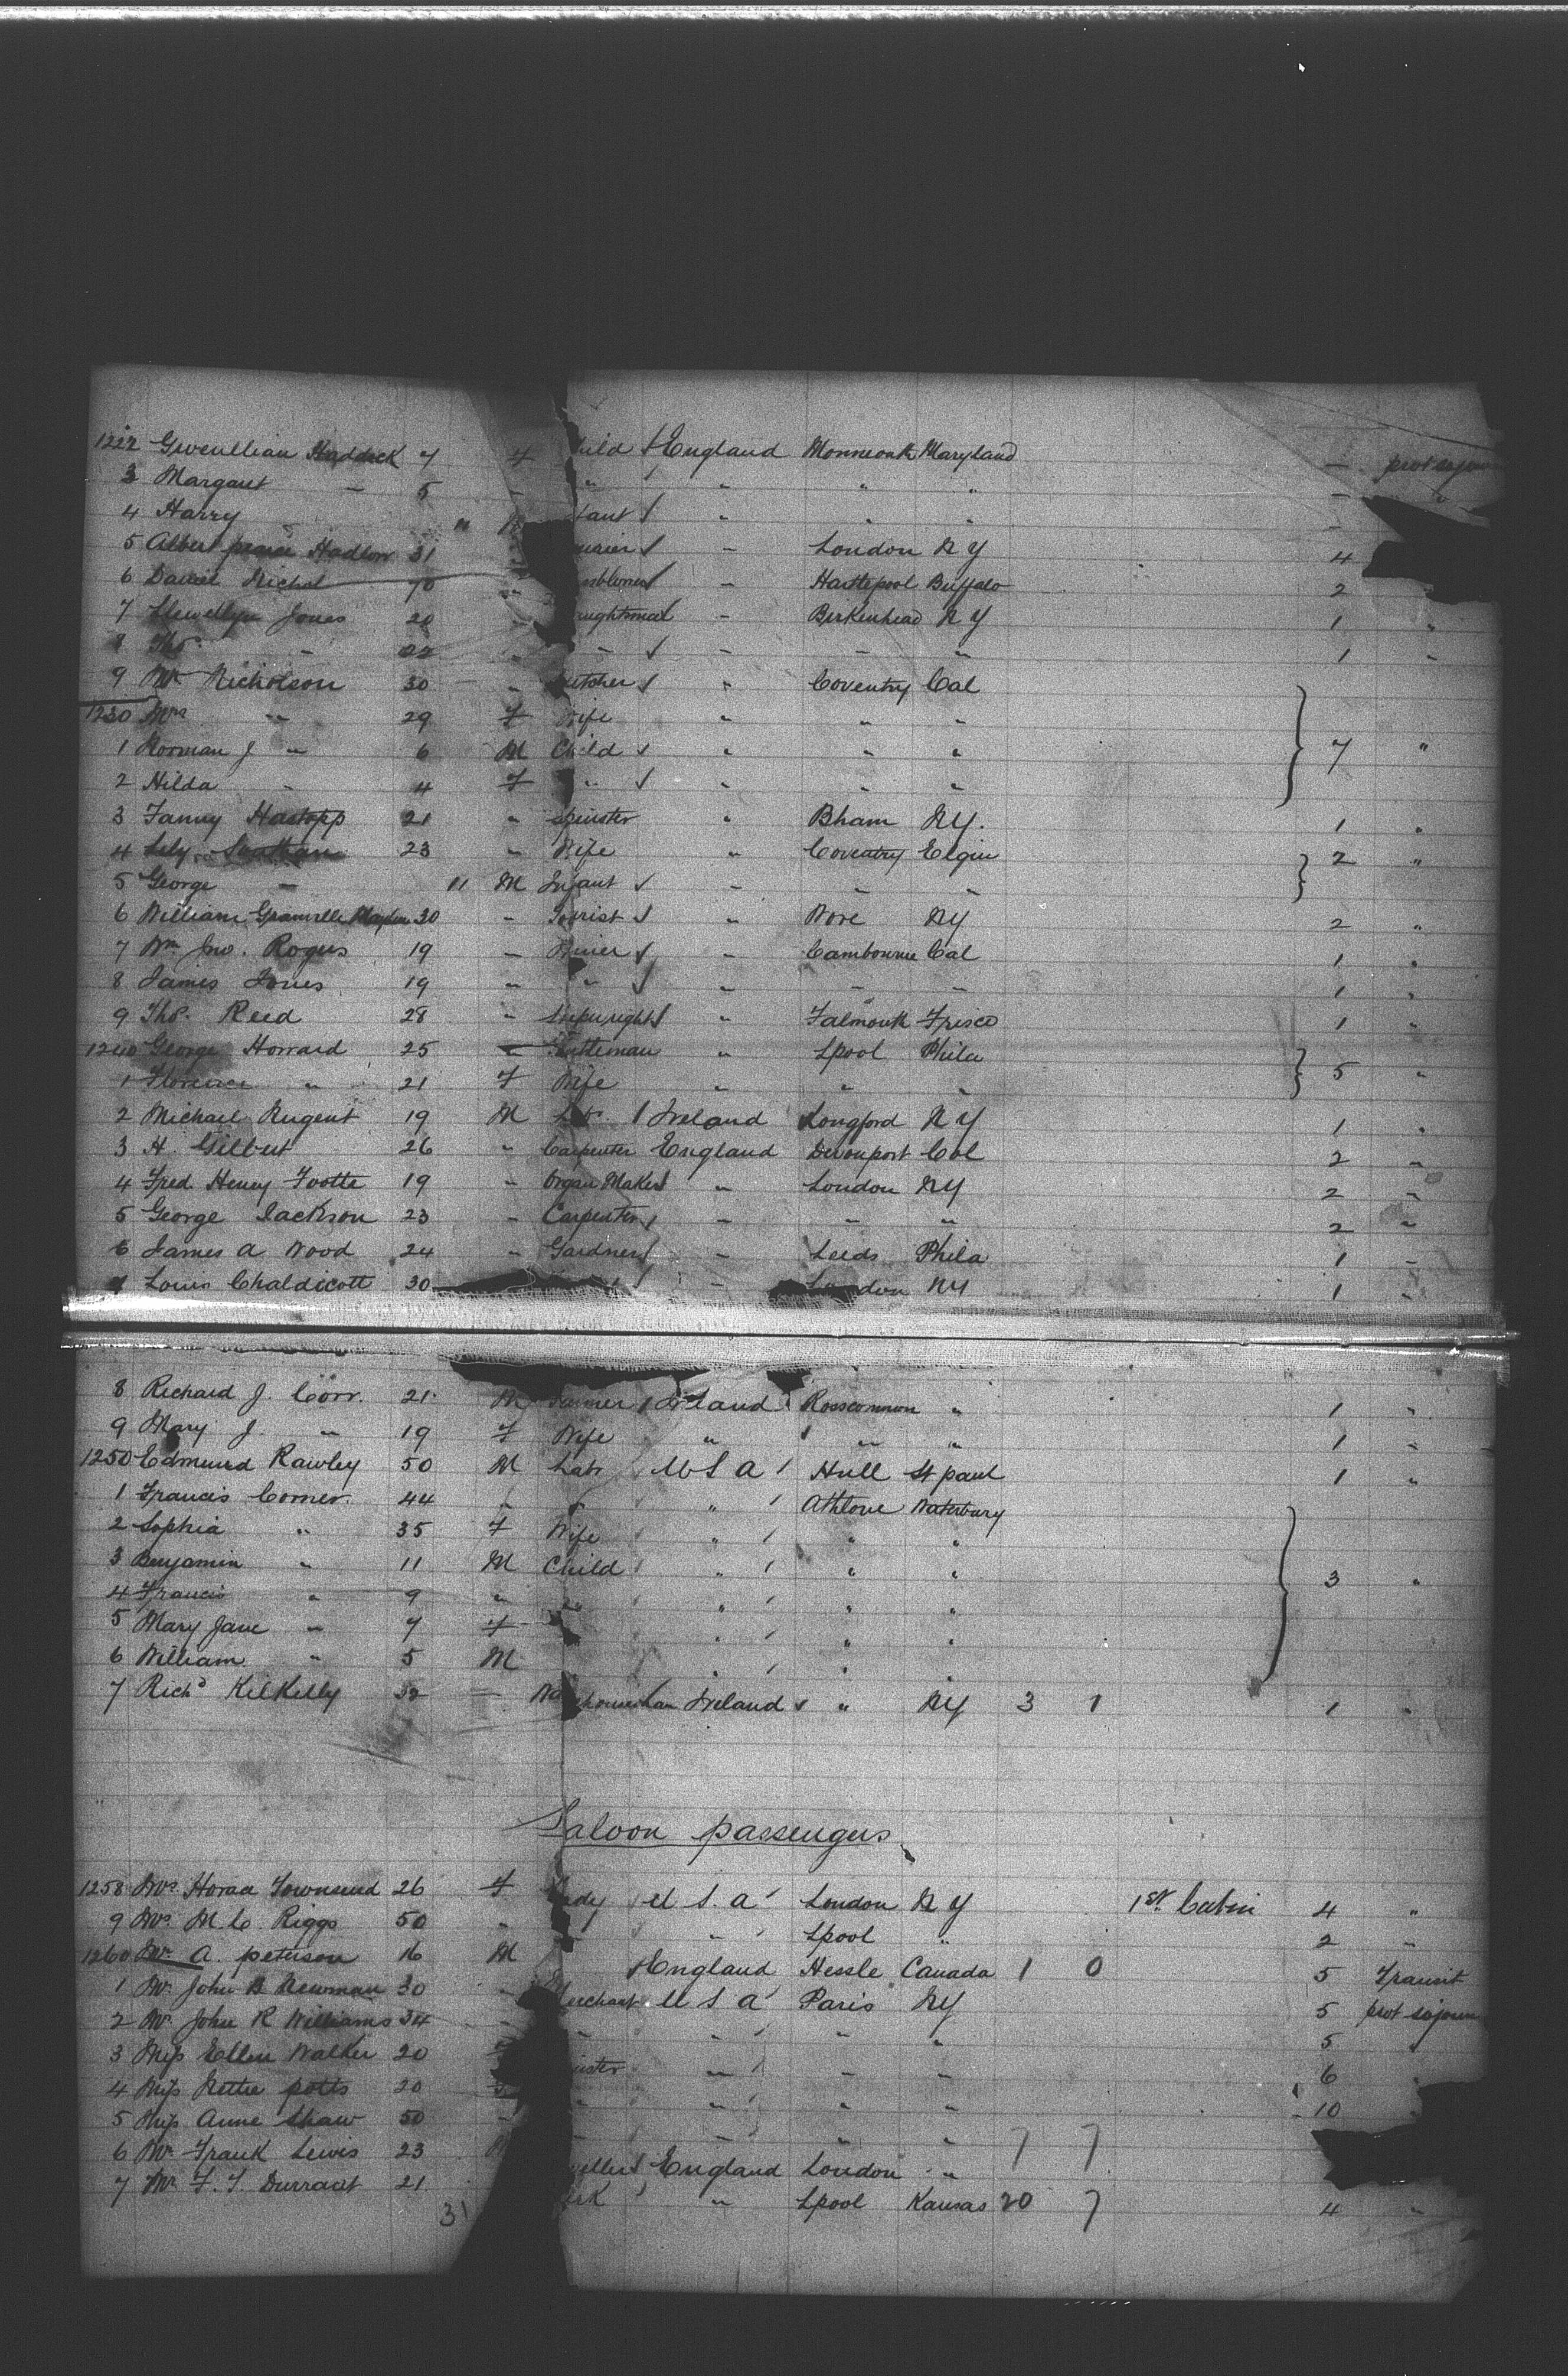 1222 Gwenllian Haddock 7 F hild England Monmouth Maryland — prot sojourn
3 Margaret — 5 " " " " " —
4 Harry " 11 fant " " " —
5 Albert Hadlow 31 " — London N Y 4
6 Daniel Nichol 70 " — Hartlepool Buffalo 2
7 Llewellyn Jones 20 " aughtsman — Birkenhead N Y 1 "
8 Thos " 22 " " — " " 1 "
9 Wm Nicholson 30 " utcher " Coventry Cal
1230 Mrs " 29 F Wife " " "
1 Norman J " 6 M Child " " " 7 "
2 Hilda " 4 F " " " "
3 Fanny Hastopp 21 " Spinster " Bham NY. 1 "
4 Lily 23 " Wife " Coventry Elgin 2 "
5 George — 11 M Infant — " "
6 William Granville 30 " Tourist " Wore NY 2 "
7 Wm Jno. Rogers 19 " Miner — Cambourne Cal 1 "
8 James Jones 19 " " " " " 1 "
9 Thos. Reed 28 " Shipwright " Falmouth Frisco 1 "
1240 George Howard 25 " Gentleman " Lpool Phila
1 Florence " 21 F Wife " " " 5 "
2 Michael Nugent 19 M Lbr. Ireland Longford N Y 1 "
3 H. Gilbert 26 " Carpenter England Devonport Col 2 "
4 Fred. Henry Footte 19 " Organ Maker " London NY 2 "
5 George Jackson 23 " Carpenter — " " 2 "
6 James A Wood 24 " Gardner — Leeds Phila 1 "
7 Louis Chaldicott 30 — London NY 1 "
8 Richard J. Corr. 21 M Ireland Roscommon " 1 "
9 Mary J. " 19 F Wife " " " 1 "
1250 Edmund Rawley 50 M Labr U S A Hull St paul 1 "
1 Francis Corner. 44 " " " Athlone Waterbury
2 Sophia " 35 F Wife " " "
3 Benjamin " 11 M Child " " " 3 "
4 Francis " 9 " " " " "
5 Mary Jane " 7 F " " "
6 William " 5 M " " "
7 Richd Kilkelly 32 — Wa houseman Ireland " NY 3 1 1 "
Saloon passengers
1258 Mrs Horace Townsend 26 F Lady U S. A London N Y 1st Cabin 4 "
9 Mrs M C. Riggs 50 " " Lpool " 2 "
1260 Mr. A. peterson 16 M England Hessle Canada 1 0 5 Transit
1 Mr. John B Newman 30 " Merchant U S A Paris NY 5 prot sojourn
2 Mr. John R Williams 34 " " " " " 5 "
3 Miss Ellen Walker 20 F inster " " " 6 "
4 Miss Nettie potts 20 " " " " 10
5 Miss Anne Shaw 50 " " " " " 7 7
6 Mr. Frank Lewis 23 M England London "
7 Mr. F. T. Durrant 21 erk " Lpool Kansas 20 7 4 "
31